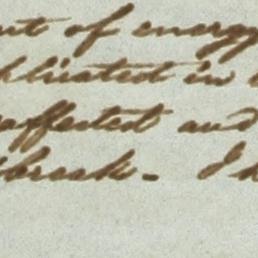 of energy
plicated in
affected and
break. I